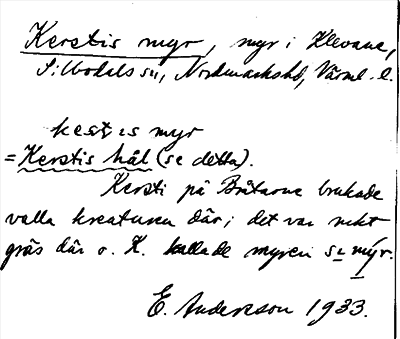 Kerstis myr, myr i Klevane,
Silbodals sn, Nordmarkshd, Värml. l.
kestis myr
= Kerstis hål (se detta).
Kersti på Bråtarne brukade
valla kreaturen där; det var mkt
gräs där o. K. kallade myren sin myr.
E. Andersson 1933.